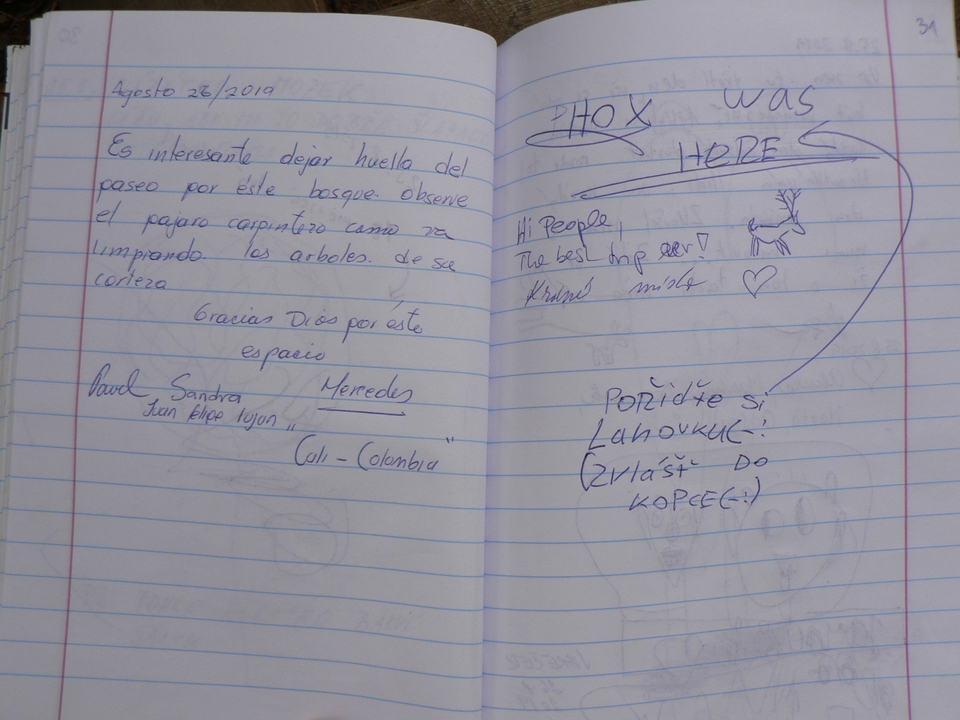 Agosto 26/2019
Es interesante dejar huella del
paseo por éste bosque. observe
el pajaro carpintero como va
limpiando los arboles. de su
corteza
Gracias Dios por éste
espacio
Pavel Sandra Mercedes
Juan Felipe Lujan "
Cali - Colombia "
31
PHOX was
HERE
Hi People,
The best trip ever!
Krásné místo
POŘIĎTE Si
LANOVKU(-:
(ZVLÁŠŤ DO
KOPCE(-:)